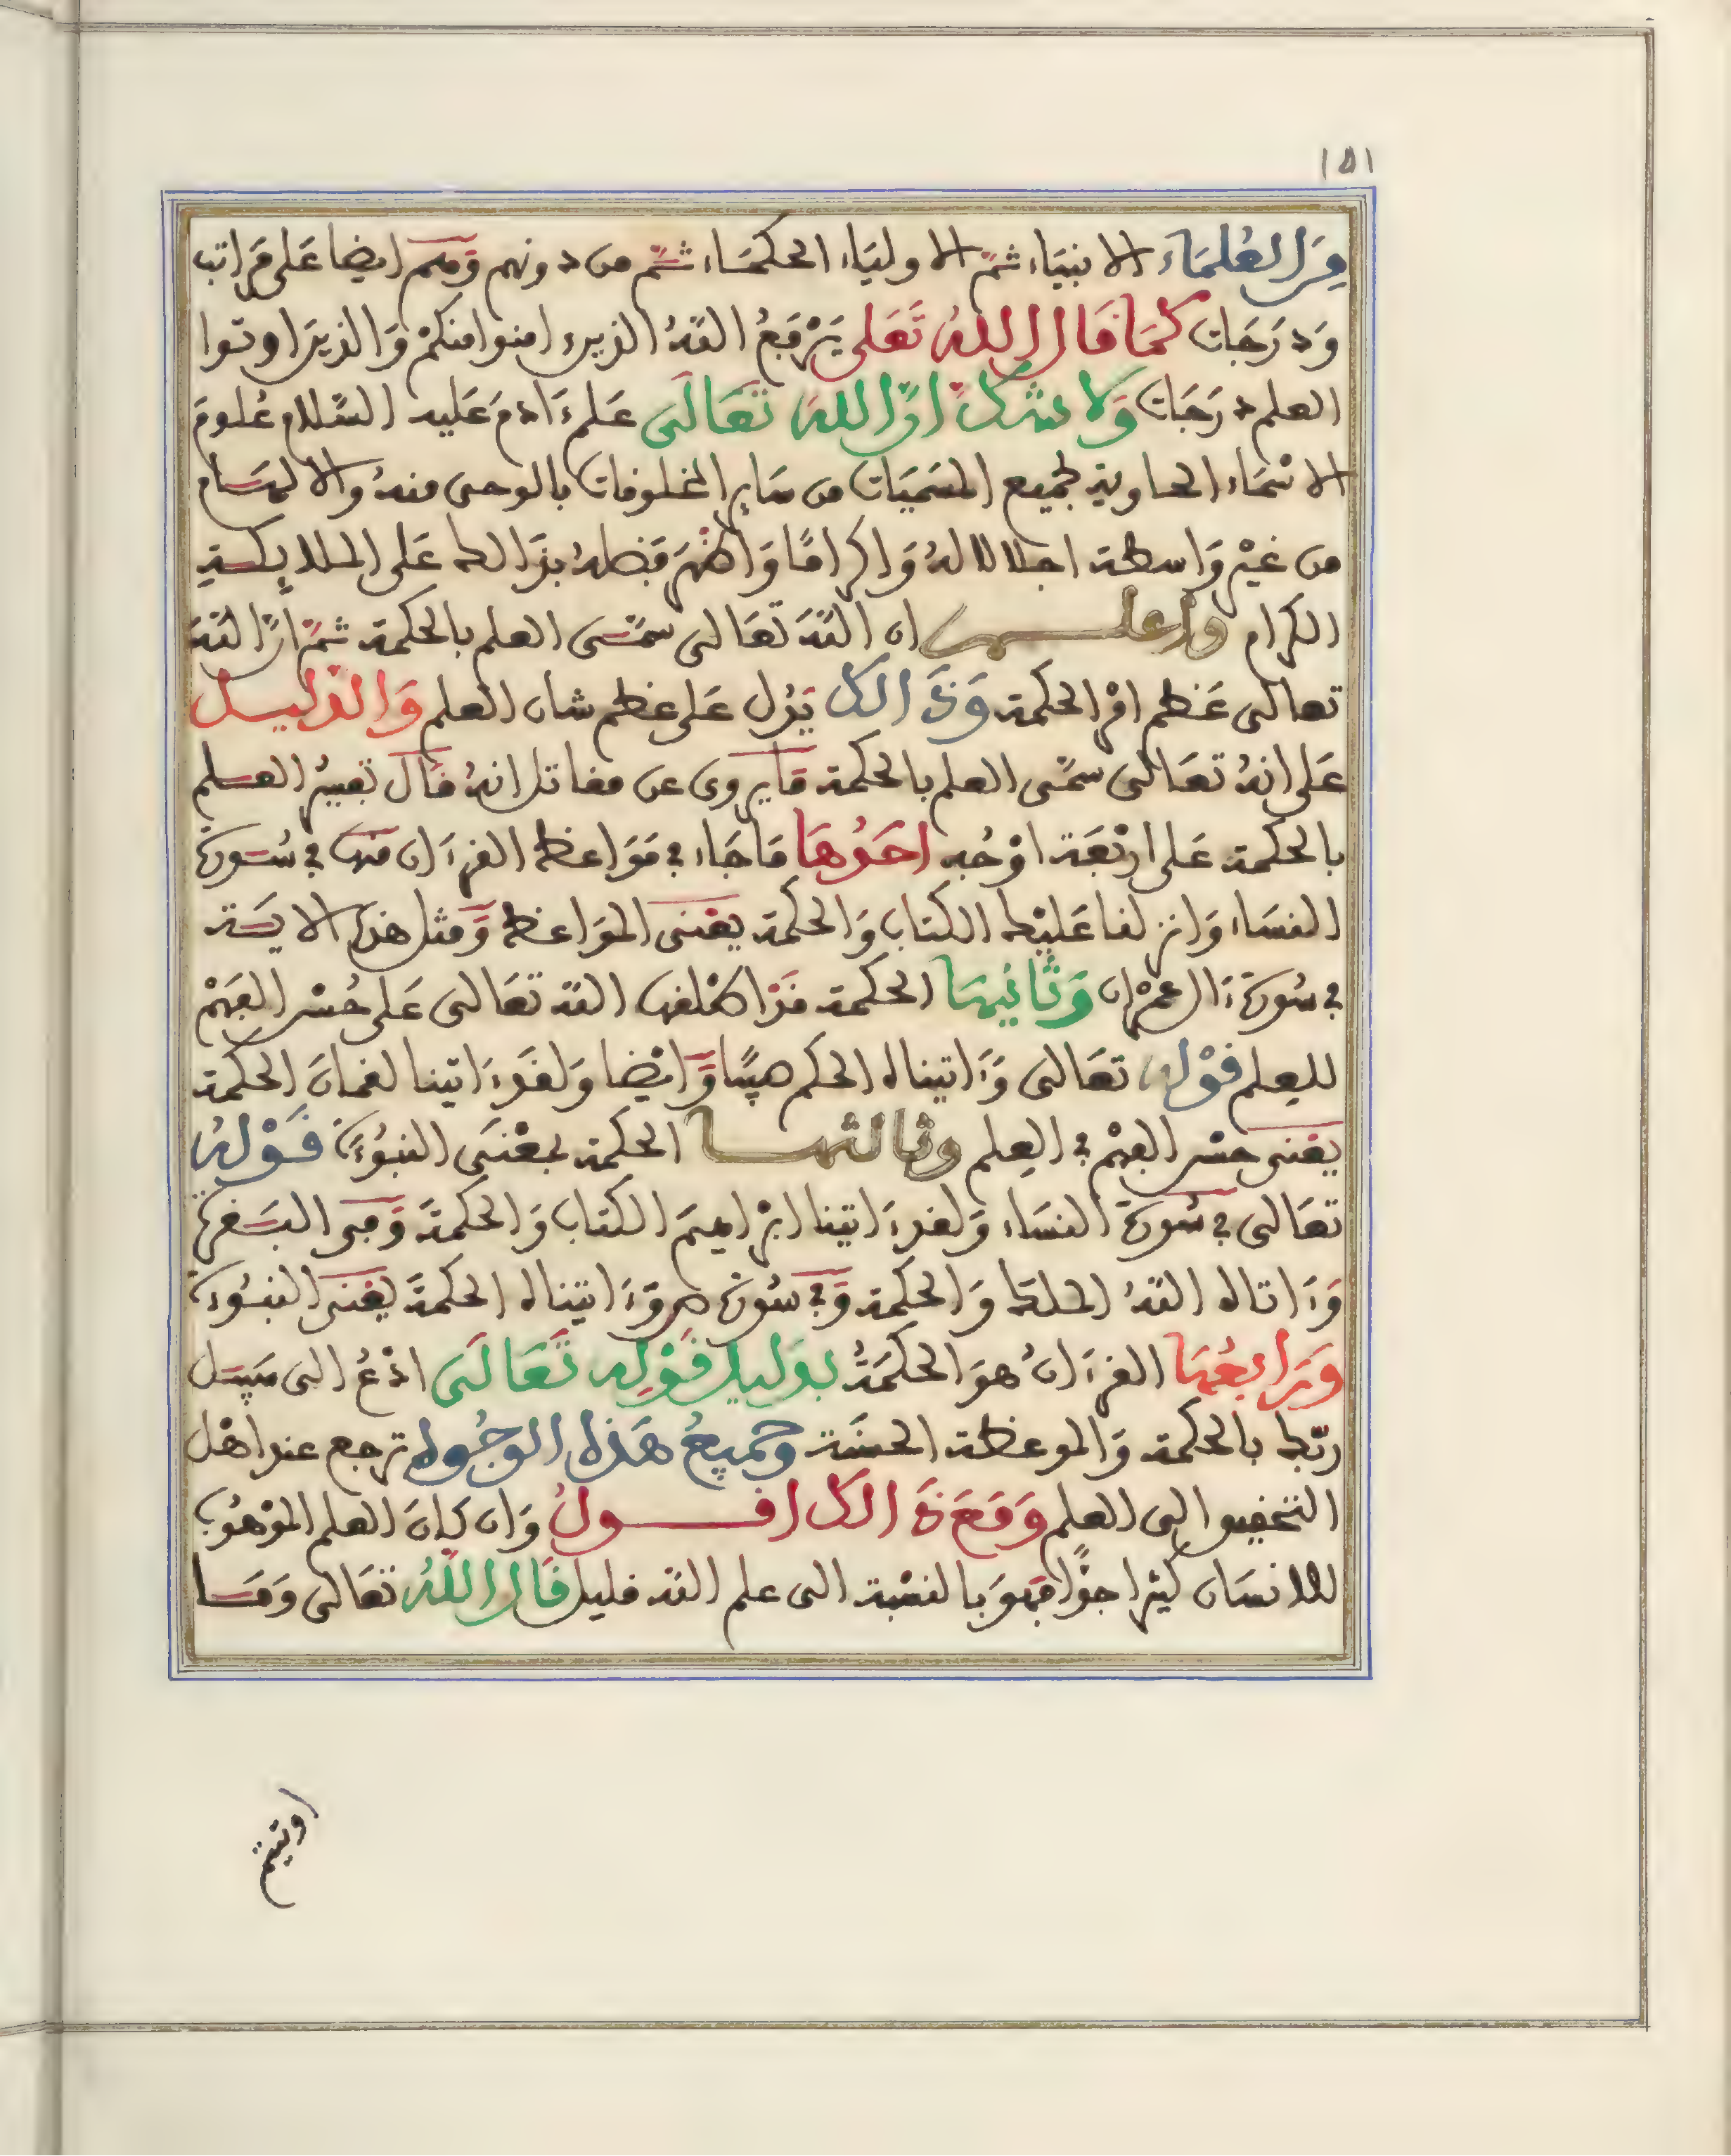 ١٥١
من العلماء الانبياء ثمّ الاولياء الحكمَاء ثمّ من دونهم وَهم ايضا عَلى مَراتب
وَدرَجَات كمَا قال اللهُ تَعَلى يَرْفعُ اللهُ الذين امنوا منكمْ وَالذينَ اوتوا
العلم درَجَات وَلا شك انّ اللهَ تعَالَى عَلم ءَادمَ عَليه السّلام عُلومَ
الاسْمَاء الحاوية لجميع المسَميَات من سَاير المخلوفات بالوحى منهُ والالهَام
من غيْر وَاسطة اجلالا لهُ وَاكرامًا وَاظهرَ فضلهُ بذَالك عَلى الملايكة
الكرام واعلم ان اللهَ تعَالى سمّى العلم بالحكمة ثمّ انّ اللهَ
تعالى عَظم امْر الحكمة وَذَالك يَدُل عَلى عظم شان العلم وَالدليل
عَلى انهُ تعَالى سمّى العلم بالحكمة مَا يروى عن مفاتل انهُ فَال تفسيْرُ العلم
بالحكمة عَلى ارْبَعَة اوْجُه احَدُهَا مَا جَاء في مَوَاعظ الفرءَان منها في سُورة
النسَاء وَانزلنا عَليْك الكتاب وَالحكمة يعْنى المَوَاعظ وَمثل هذه الاية
في سُورة ءَال عمْران وَثَانيهَا الحكمة
للعلم فوْله تعَالى وَءَاتيناه الحكم صبيًّا وَايْضا وَلفَد ءَاتينا لفمانَ الحكمة
يعْنى حسْن الفهْم في العِلم وثالثها الحكمة بمعْنَى النبُوءَة فَوْلهُ
تعَالى في سُورة النسَاء وَلفد ءَاتينا ابْراهيمَ الكتاب وَالحكمةَ وَفى البَفرة
وَءَاتاه اللهُ الملكَ وَالحكمة وَفي سُورة ص وَءَاتيناه الحكمةَ يعْنى النبُوءَة
وَرَابعُهَا الفرءَانُ هوَ الحكمَةُ بدَليل فَوْلِه تعَالَى ادْعُ الى سَبيل
ربّك بالحكمة وَالموعظة الحسَنَة وَجميعُ هَذه الوجُوه ترجع عند اهْل
التحفيق الى العلم وَمَعَ ذَالك افول وَان كانَ العلم الموْهُوب
للانسَان كثيْرا جدًّا فهوَ بالنسْبة الى علم الله فليل فَال اللهُ تعَالى وَمَا
اوتيتم